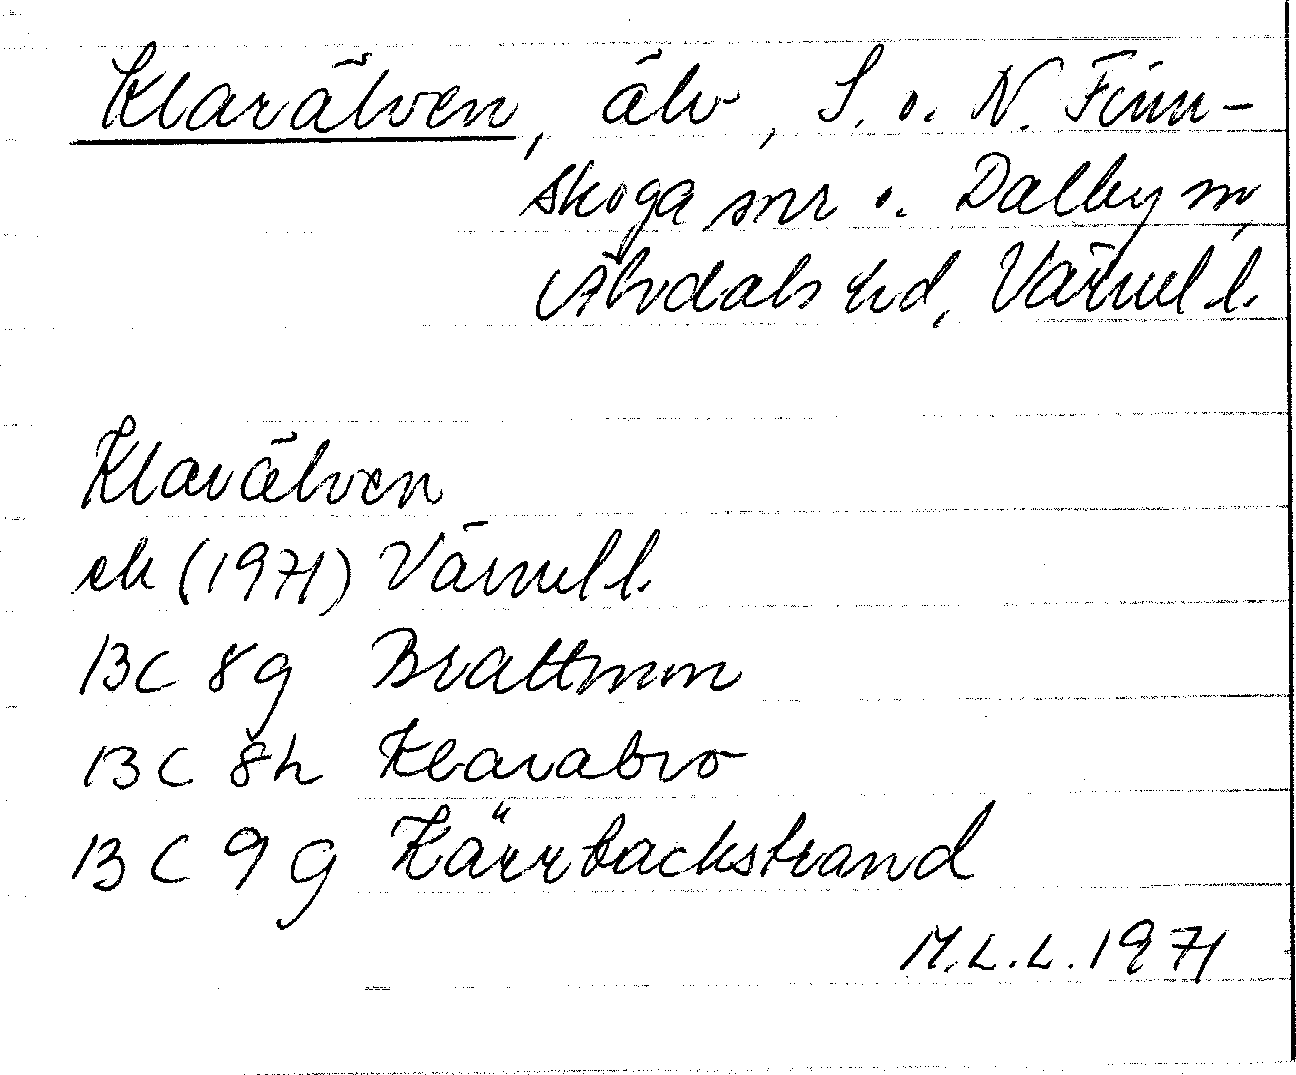 Klarälven, älv, S. o. N. Finn-
skoga snr o. Dalby sn,
Älvdals hd, Värml l.
Klarälven
ek (1971) Värml l.
13C 8g Brattmon
13C 8h Klarabro
13C 9g Kärrbackstrand
M.L.L. 1971